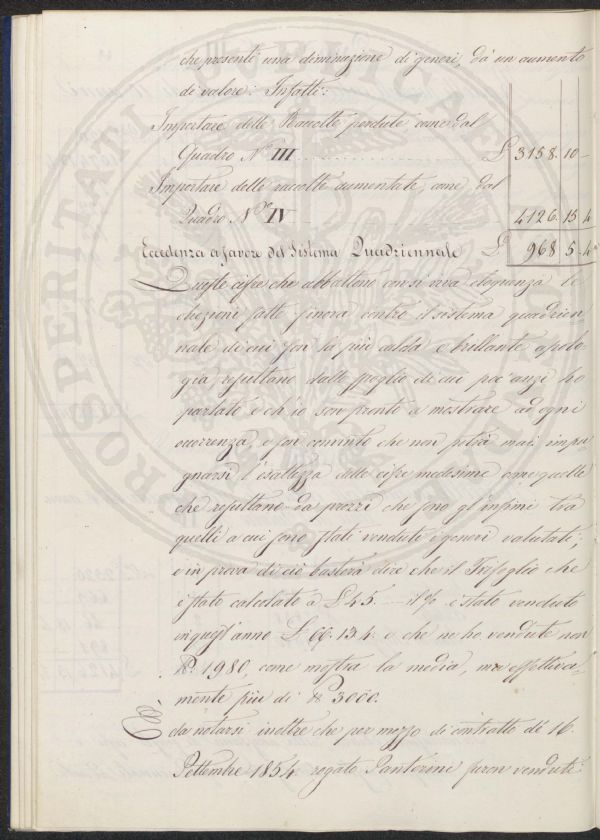 che presenti una diminuzione di generi, dà un aumento
di valore: Infatti:
Importare delle Raccolte perdute come dal
Quadro N.º III ............ £ 3158. 10 -
Importare delle raccolte aumentate, come dal
Quadro N.º IV ............ 4126. 15. 4
Eccedenza a favore del Sistema Quadriennale £ 968. 5. 4
Queste cifre che abbattono con sì viva eloquenza le
obezioni fatte finora contro il sistema quadrien
nale di cui son la più calda e brillante apolo
gia resultano dallo spoglio di cui poc'anzi ho
parlato e ch'io son pronto a mostrare ad ogni
occorrenza, e son convinto che non potrà mai impu
gnarsi l'esattezza delle cifre medesime come quelle
che resultano da prezzi che sono gl'infimi tra
quelli a cui sono stati venduti i generi valutati;
e in prova di ciò basterà dire che il Trifoglio che
è stato calcolato a £ 45. il % è stato venduto
in quest'anno £ 66. 13. 4. e che ne ho vendute non
℔. 1980, come mostra la media, ma effettiva
mente più di ℔ 3000.
È da notarsi inoltre che per mezzo di contratto di 16.
Settembre 1854 rogato Santorini furon venduti
PROSPERITATI PUBLICAE